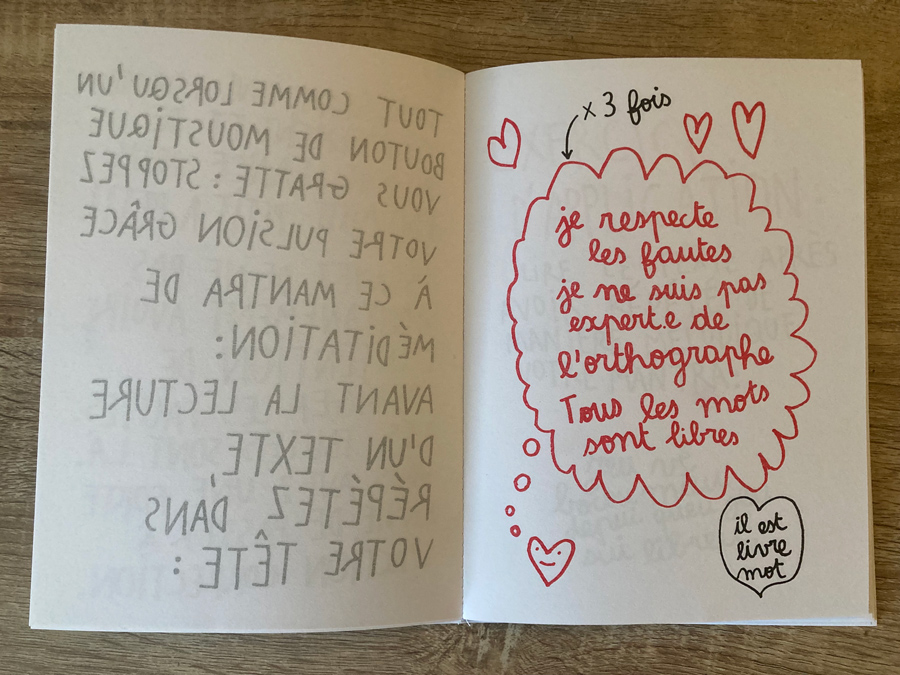 TOUT COMME LORSQU'UN
BOUTON DE MOUSTIQUE
VOUS GRATTE : STOPPEZ
VOTRE PULSION GRÂCE
À CE MANTRA DE
MÉDITATION :
AVANT LA LECTURE
D'UN TEXTE,
RÉPÉTEZ DANS
VOTRE TÊTE :
x 3 fois
je respecte
les fautes
je ne suis pas
expert.e de
l'orthographe
Tous les mots
sont libres
il est
livre
mot